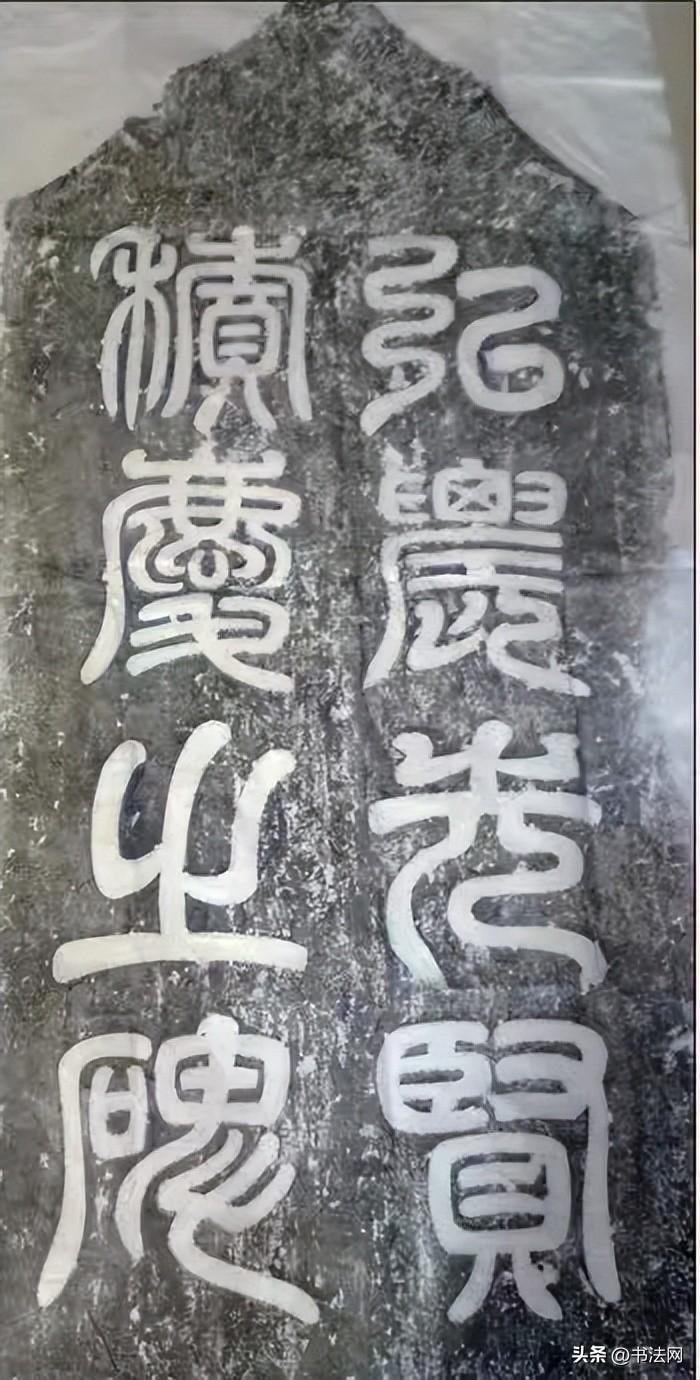 弘農先賢
積慶之碑
头条 @书法网